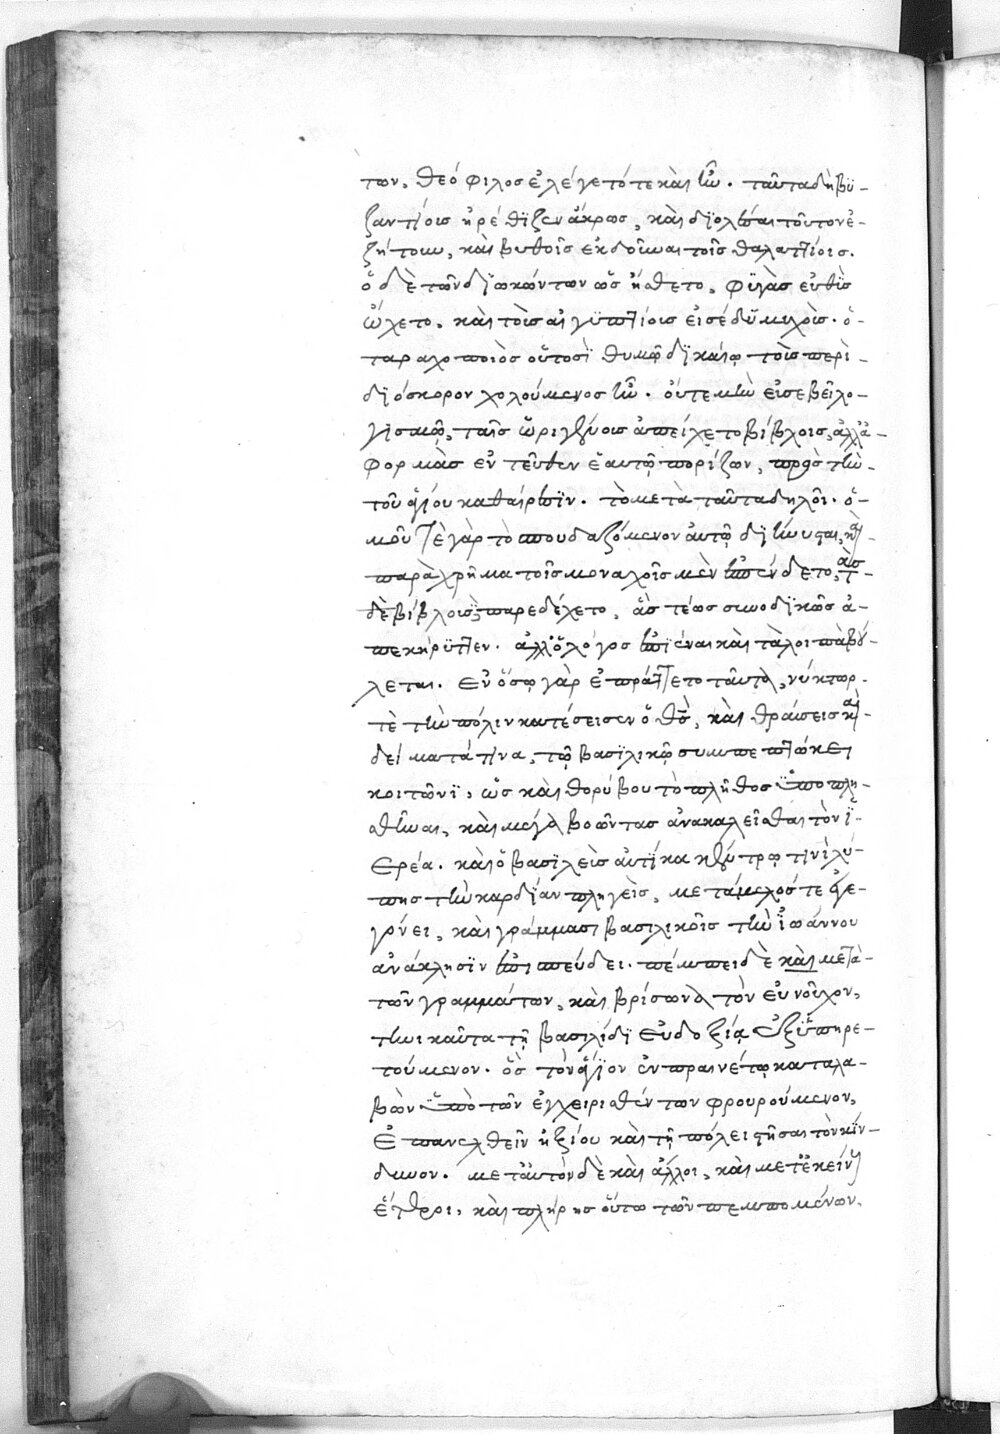 των. Θεόφιλος ἐλέγετό τε καὶ ἦν. ταῦτα δὴ βϋ-
ζαντίοις ἠρέθϊζεν ἄκρως, καὶ δϊολέσαι τοῦτον ἐ-
ζήτουν, καὶ βυθοῖς ἐκδοῦναι τοῖς θαλαττίοις.
ὁ δὲ τῶν δϊωκόντων ὡς ᾔσθετο, φϋγὰς εὐθὺς
ᾤχετο. καὶ τοῖς αἰγϋπτίοις εἰσέδϋ μυχοῖς. ὁ-
ταραχοποιὸς οὗτοσῒ θυμῷ δϊκαίῳ τοῖς περὶ-
δϊόσκορον χολούμενος ἦν. οὔτε μὴν εἰσεβεῖ λο-
γισμῷ, ταῖς ὠριγένους ἀπείχετο βίβλοις, ἀλλ' ἀ-
φορμὰς ἐντεῦθεν ἑαυτῷ πορίζων, πρὸς τὴν-
τοῦ ἁγίου καθαίρεσϊν. τὸ μετὰ ταῦτα δηλοῖ. ὁ-
μοῦ τε γὰρ τὸ σπουδαζόμενον αὐτῷ δϊήνυσται, καὶ-
παραχρῆμα τοῖς μοναχοῖς μὲν ἐσπένδετο, τὰς-
δὲ βίβλους παρεδέχετο, ἃς τέως συνοδϊκῶς ἀ-
πεκήρϋττεν. ἀλλ' ὁ λόγος ἐπϊέναι καὶ τὰ λοιπὰ βού-
λεται. Ἐν ὅσῳ γὰρ ἐπράττετο ταῦτα, νύκτωρ-
τὲ τὴν πόλιν κατέσεισεν ὁ θεὸς, καὶ θραύσεις καὶ-
δείματά τινα, τῷ βασϊλικῷ συμπεπτώκει
κοιτῶνϊ, ὡς καὶ θορύβου τὸ πλῆθος ὑποπλη-
σθῆναι, καὶ μεγάλα βοῶντας ἀνακαλεῖσθαι τὸν ἱ-
ερέα. καὶ ὁ βασϊλεὺς αὐτίκα κέντρῳ τινὶ λύ-
πης τὴν καρδϊαν πληγεὶς, μετάμελός τε ἐγε-
γόνει, καὶ γράμμασι βασιλικοῖς τὴν ἰωάννου
ἀνάκλησϊν ἐπισπεύδει. πέμπει δὲ καὶ μετὰ-
τῶν γραμμάτων, καὶ βρίσωνα τὸν εὐνοῦχον,
τηνικαῦτα τῇ βασιλίδϊ εὐδοξίᾳ ἐξϋπηρε-
τούμενον. ὃς τὸν ἅγϊον ἐν πραινέτῳ καταλα-
βὼν ὑπὸ τῶν ἐγχειρισθέντων φρουρούμενον,
ἐπανελθεῖν ἠξίου καὶ τῇ πόλει στῆσαι τὸν κίν-
δυνον. μετ' αὐτὸν δὲ καὶ ἄλλοι, καὶ μετ' ἐκείνους
ἕτεροι, καὶ πλήρης οὕτω τῶν πεμπομένων.